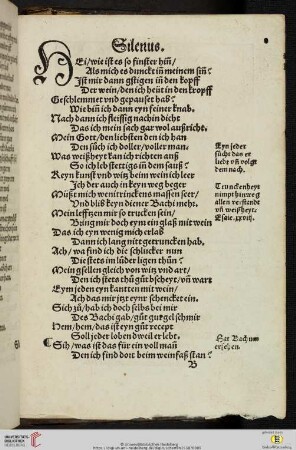 Silenus.
Hei/wie ist es so finster hiñ/
Als mich es dunckt iñ meinem siñ?
Ist mir dann gstigen iñ den kopff
Der wein/den ich heüt in den kropff
Geschlemmet vnd gepauset hab?
Wie biñ ich dann eyn feiner knab.
Nach dann ich fleissig nacht dicht
Das ich mein sach gar wol außricht.
Mein Gott/den liebsten den ich han
Den süch ich doller/voller man.
Was weißheyt kan ich richten anß
So ich leb stettigs iñ dem sauß?
Keyn kunst vnd witz beim wein ich leer
Jch der auch in keyn weg beger
Müßt mich wein trinckens massen seer/
Vnd bliß keyn diener Bachi mehr.
Mein lefftzen mir so trucken sein/
Bring mir doch eym ein glaß mit wein
Das ich eyn wenig mich erlab
Dann ich lang nit getruncken hab.
Ach/wa sind ich die schlucker nun
Die stets im luder ligen thün?
Mein gsellen gleich von witz vnd art/
Den ich stets thü güt bscheyt/vñ wart
Eym jeden eyn kanten mit wein/
Ach das mir jtzt eynr schencket ein.
Sich zü/hab ich doch selbs bei mir
Des Bachi gab/güt gurgel schmir
Hem/hem/das ist eyn güt recept
Soll jeder loben dweil er lebt.
Sih/was ist das für ein voll mañ
Den ich sind dort beim weinfaß stan?
B
Eyn jeder
sücht das er
liebt vñ volgt
dem nach.
Trunckenheyt
nimpt hinweg
allen verstandt
vñ weißheyt.
Esaie.xxviij.
Hat Bachum
ersehen.